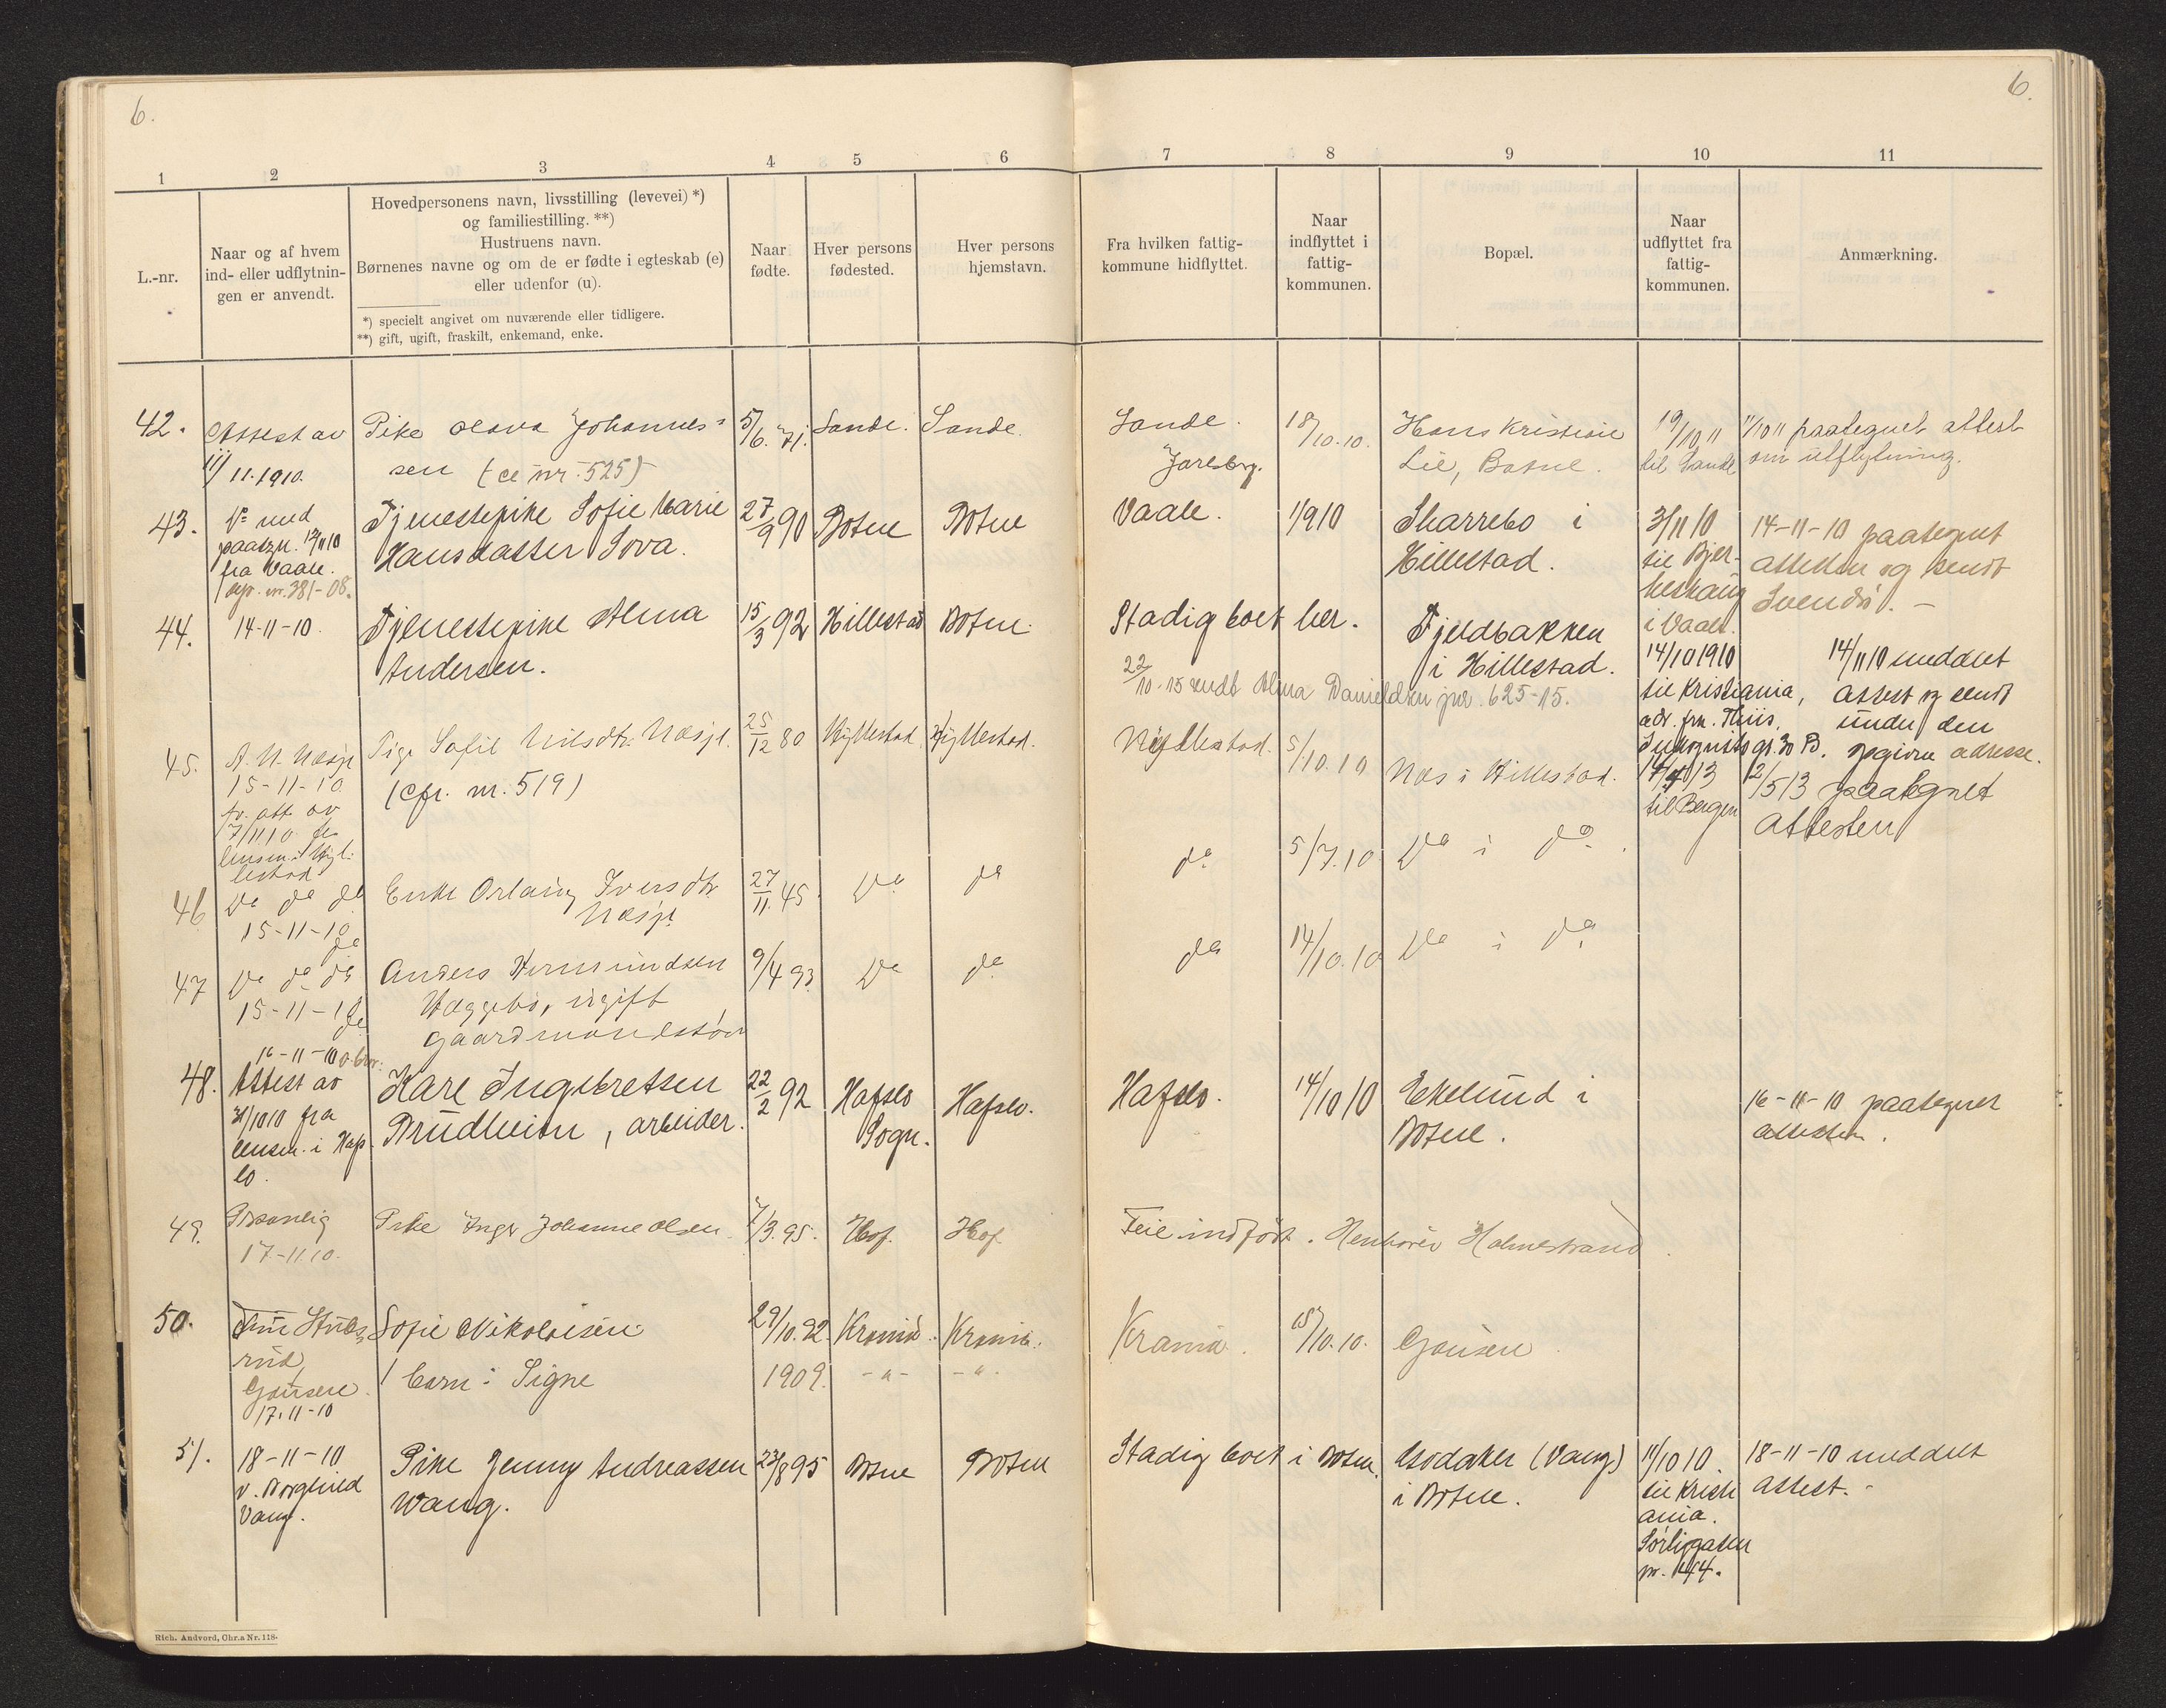 6.
6.
1 2 3 4 5 6 7 8 9 10 11
L.-nr.
Naar og af hvem
ind- eller udflytnin-
gen er anvendt.
Hovedpersonens navn, livsstilling (levevei) *)
og familiestilling. **)
Hustruens navn.
Børnenes navne og om de er fødte i egteskab (e)
eller udenfor (u).
*) specielt angivet om nuværende eller tidligere.
**) gift, ugift, fraskilt, enkemand, enke.
Naar
fødte.
Hver persons
fødested.
Hver persons
hjemstavn.
Fra hvilken fattig-
kommune hidflyttet.
Naar
indflyttet i
fattig-
kommunen.
Bopæl.
Naar
udflyttet fra
fattig-
kommunen.
Anmærkning.
42.
Attest av
11/11.1910.
Pike Olava Johannes-
sen (se nr. 525)
5/6. 71.
Sande.
Sande.
Sande.
Jarlsberg.
18/10.10.
Hans Kristian
Lie, Botne.
19/10 11
til Sande
1/10 11 paategnet attest
om utflytning.
43.
Do med
paategn. 12/11 10
fra Vaale.
nr. 381-08.
Tjenestepike Sofie Marie
Hansdatter Sova.
27/9 90
Botne
Botne
Vaale.
1/9 10
Skarrebo i
Hillestad.
3/11 10
til Bjer-
keskaug
i Vaale.
14-11-10 paategnet
attesten og sendt
Svendsø. -
44.
14-11-10.
Tjenestepike Alma
Andersen.
15/3 92
Hillestad
Botne.
Stadig boet her.
22/10-15 sendt Alma Danielsen jnr. 625-15.
Fjeldbakken
i Hillestad.
14/10 1910
til Kristiania,
adr. frk. Thiis.
Industrigt. 30 B.
14/11 10 meddelt
attest og sendt
under den
opgivne adresse.
45.
A. N. Næsje
15-11-10.
fr. att av
7/11 10 fr
lensm. i Hyl-
lestad
Pige Sofie Nilsdtr. Næsje.
(cfr. nr. 519)
25/12 80
Hyllestad
Hyllestad.
Hyllestad.
5/10.10
Næs i Hillestad.
17/4 13
til Bergen
2/5 13 paategnet
attesten
46
Do do do
15-11-10
do
Enke Orlaug Iversdtr.
Næsje
27/11. 45.
Do
do
do
5/7.10
Do i do.
47
Do do do
15-11-10
do
Anders Hermundsen
Hæggebø, ugift
gaardmandssøn
9/4 93.
Do
do
do
14/10.10
Do i do
48.
16-11-10
Attest av
31/10 10 fra
lensm. i Haf-
lo.
Kare Ingebretsen
Prudheim, arbeider.
22/2 92
Hafslo
Sogn.
Hafslo.
Hafslo.
14/10 10
Ekelund i
Botne.
16-11-10 paategnet
attesten.
49.
Personlig
17-11.10.
Pike Inger Johanne Olsen.
7/3.95.
Hof.
Hof.
Feil indført. Henhører Holmestrand.
50.
Stubs-
rud,
Gausen.
17.11-10
Sofie Nikolaisen.
1 barn: Signe
29/10.92.
1909.
Krania.
- " -
Krania.
- " -
Krania.
15/10.10.
Gausen.
51.
18-11-10
v. Borghild
Vang.
Pike Jenny Andreassen
Wang.
23/8 95
Botne
Botne
Stadig boet i Botne.
(Vang)
i Botne.
11/10 10.
til Kristi
ania.
Sørligaten
nr. 44.
18-11-10 meddelt
attest. -
Rich. Andvord, Chr.a Nr. 118.